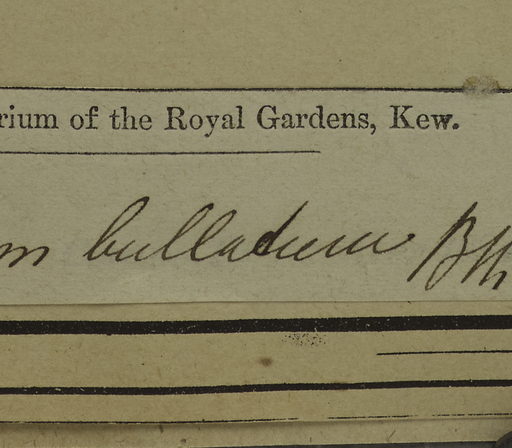 rium of the Royal Gardens, Kew.
m bullatum B